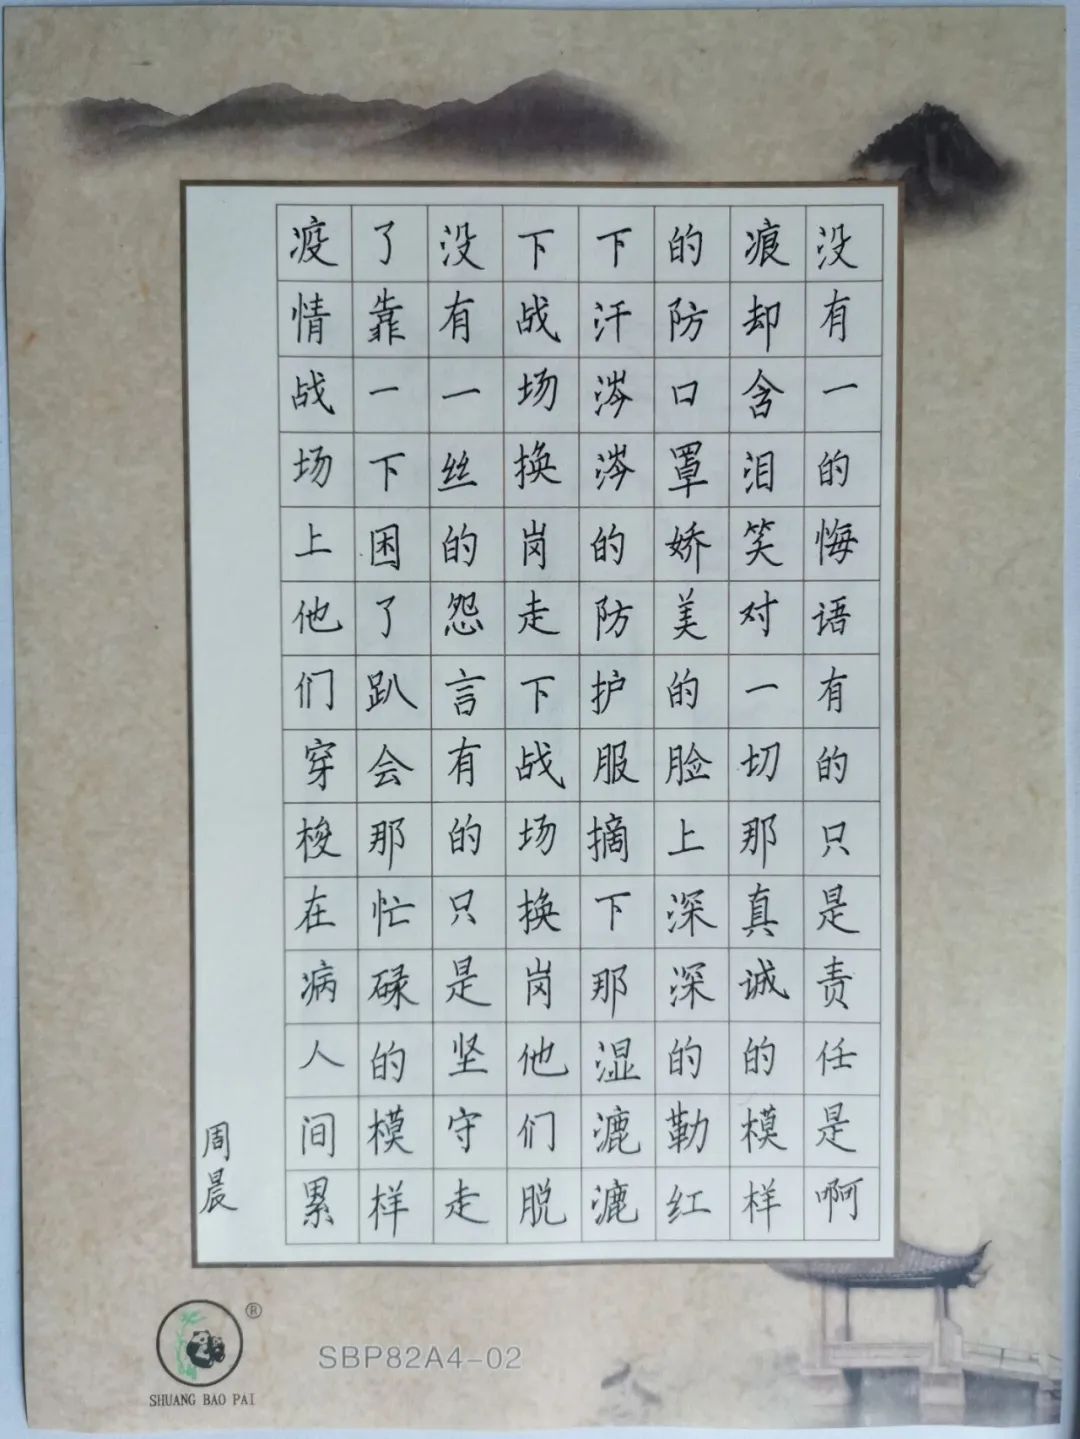 疫情战场上他们穿梭在病人间累
了靠一下困了趴会那忙碌的模样
没有一丝的怨言有的只是坚守走
下战场换岗走下战场换岗他们脱
下汗涔涔的防护服摘下那湿漉漉
的防口罩娇美的脸上深深的勒红
痕却含泪笑对一切那真诚的模样
没有一的悔语有的只是责任是啊
周晨
SHUANG BAO PAI
®
SBP82A4-02